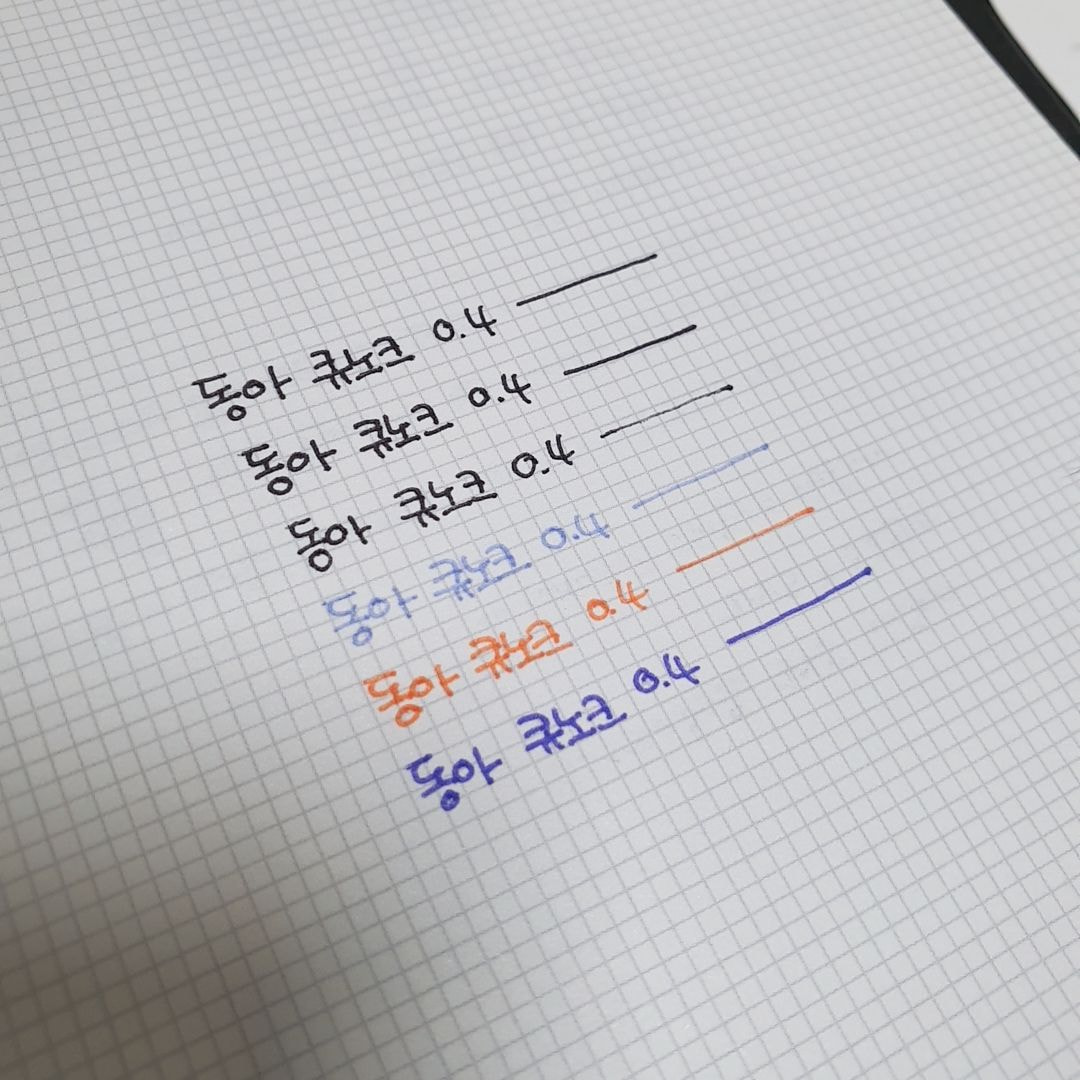 동아 큐노크 0.4
동아 큐노크 0.4
동아 큐노크 0.4
동아 큐노크 0.4
동아 큐노크 0.4
동아 큐노크 0.4